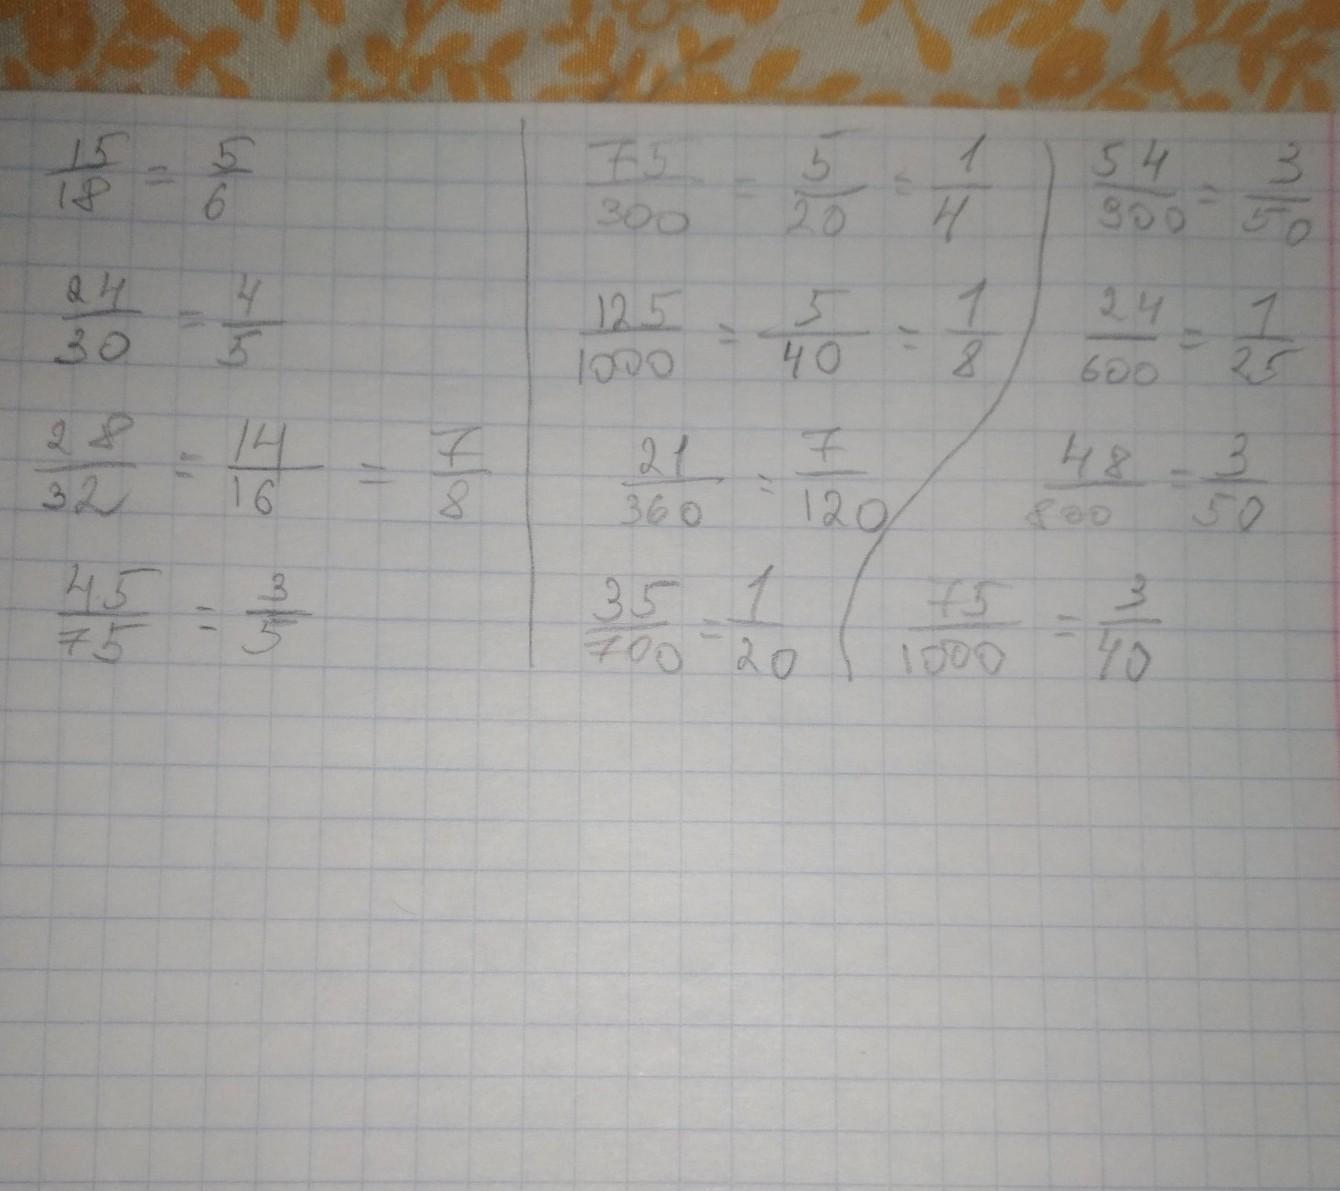 15/18 = 5/6
24/30 = 4/5
28/32 = 14/16 = 7/8
45/75 = 3/5
75/300 = 5/20 = 1/4
125/1000 = 5/40 = 1/8
21/360 = 7/120
35/700 = 1/20
54/900 = 3/50
24/600 = 1/25
48/800 = 3/50
75/1000 = 3/40